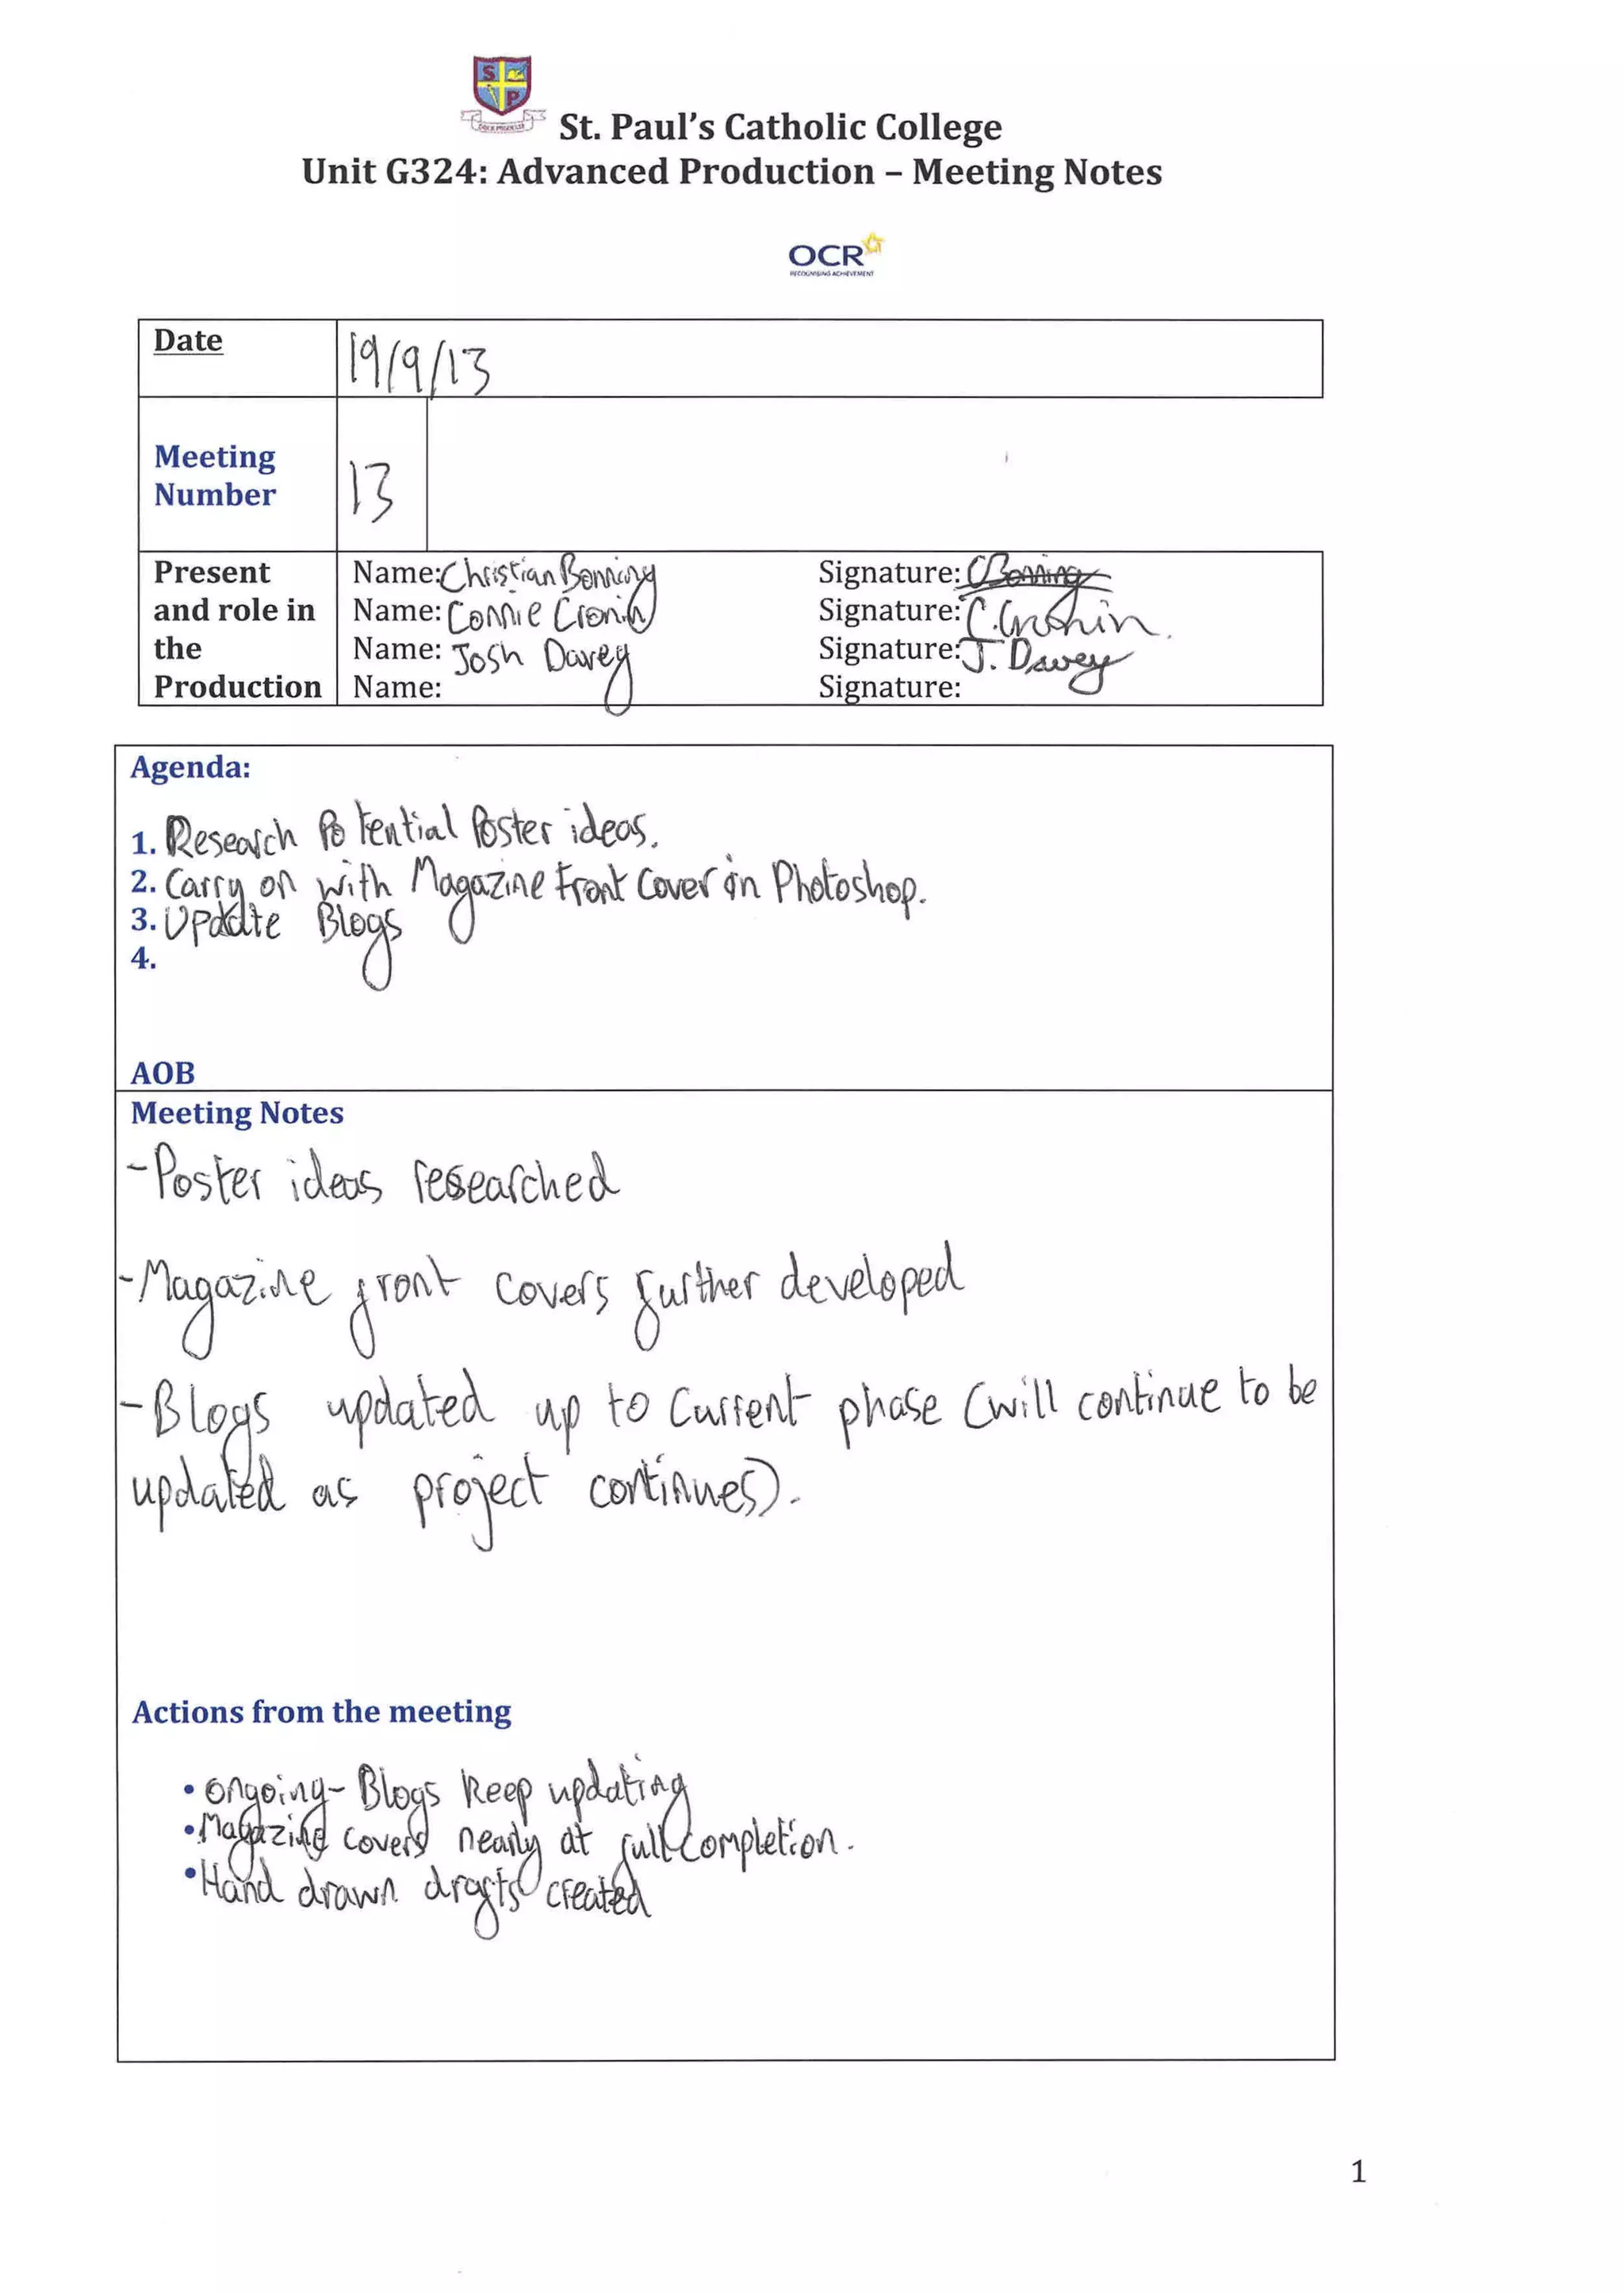 S P
St. Paul's Catholic College
Unit G324: Advanced Production – Meeting Notes
OCR
RECOGNISING ACHIEVEMENT
Date 19/9/13
Meeting
Number 13
Present Name: Christian Bonning Signature: CBonning
and role in Name: Connie Cronin Signature: C.Cronin
the Name: Josh Davey Signature: J. Davey
Production Name: Signature:
Agenda:
1. Research Potential Poster ideas.
2. Carry on with Magazine Front Cover in Photoshop.
3. Update Blogs
4.
AOB
Meeting Notes
-Poster ideas researched
-Magazine front covers further developed
-Blogs updated up to current phase (will continue to be
updated as project continues).
Actions from the meeting
• Ongoing- Blogs keep updating
• Magazine covers nearly at full completion.
• Hand drawn drafts created
1